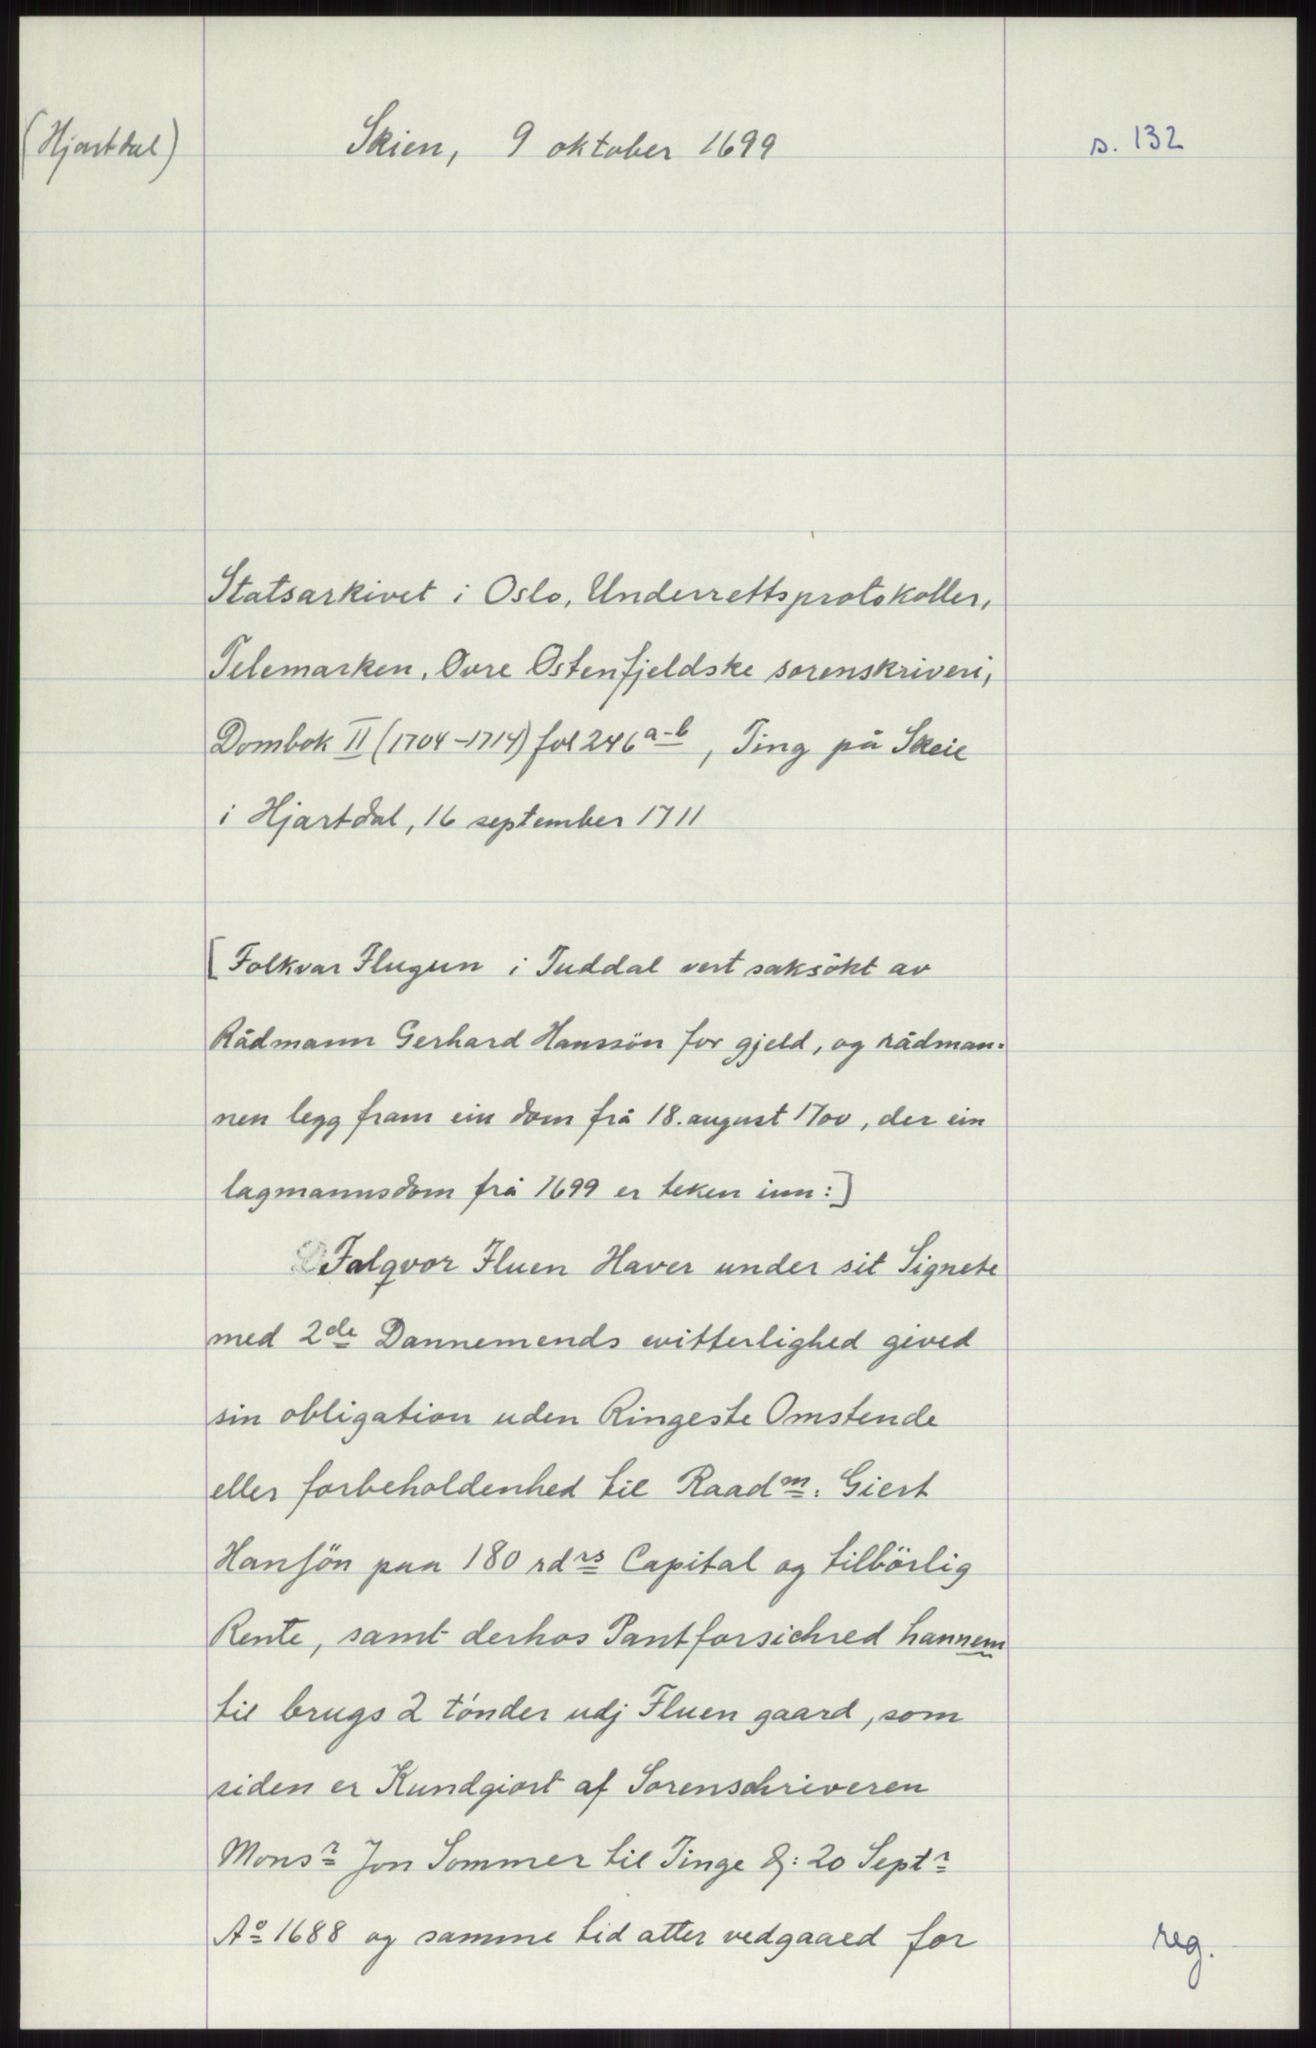 (Hjartdal)
Skien, 9 oktober 1699
s. 132
Statsarkivet i Oslo, Underrettsprotokoller,
Telemarken, Øvre Østenfjeldske sorenskriveri,
Dombok II (1704-1714) fol 246 a-b, Ting på Skeie
i Hjartdal, 16 september 1711
[Folkvar Flugun i Tuddal vert saksökt av
Rådmann Gerhard Hanssön for gjeld, og rådman-
nen legg fram ein dom frå 18. august 1700, der ein
lagmannsdom frå 1699 er teken inn:]
Falqvor Fluen Haver under sit Signete
med 2de Dannemends witterlighed gived
sin obligation uden Ringeste Omstende
eller forbeholdenhed til Raadm: Giert
Hansön paa 180 rdrs Capital og tilbörlig
Rente, samt derhos Pantforsichred hannem
til brugs 2 tönder udj Fluen gaard, som
siden er Kundgiort af Sorenschriveren
Monsr Jon Sommer til Tinge d: 20 Septr
Ao 1688 og samme tid atter vedgaaed for
reg.